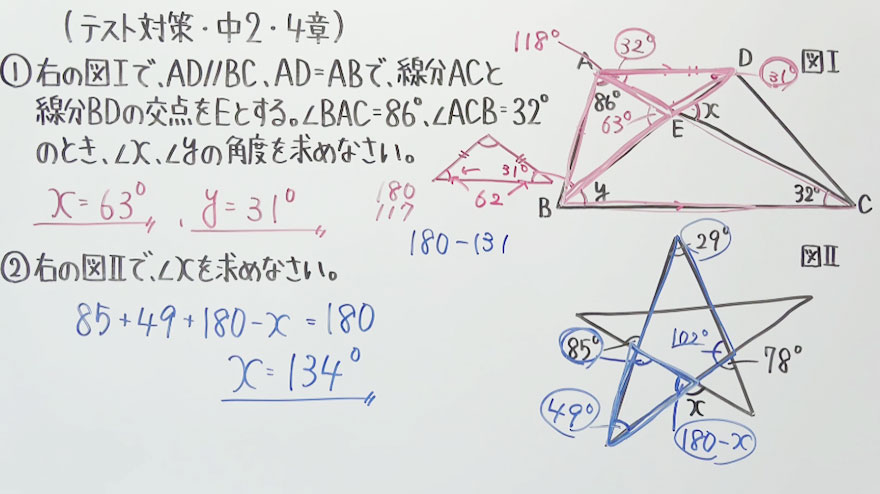 (テスト対策・中2・4章)
①右の図Ⅰで、AD//BC、AD=ABで、線分ACと
線分BDの交点をEとする。∠BAC=86°、∠ACB=32°
のとき、∠x、∠yの角度を求めなさい。
x=63°、y=31°
180
117
180-131
31°
62
118°
32°
A
D
31°
図Ⅰ
86°
63°
x
E
B
y
32°
C
②右の図Ⅱで、∠xを求めなさい。
85+49+180-x=180
x=134°
29°
図Ⅱ
85°
102°
78°
x
49°
180-x